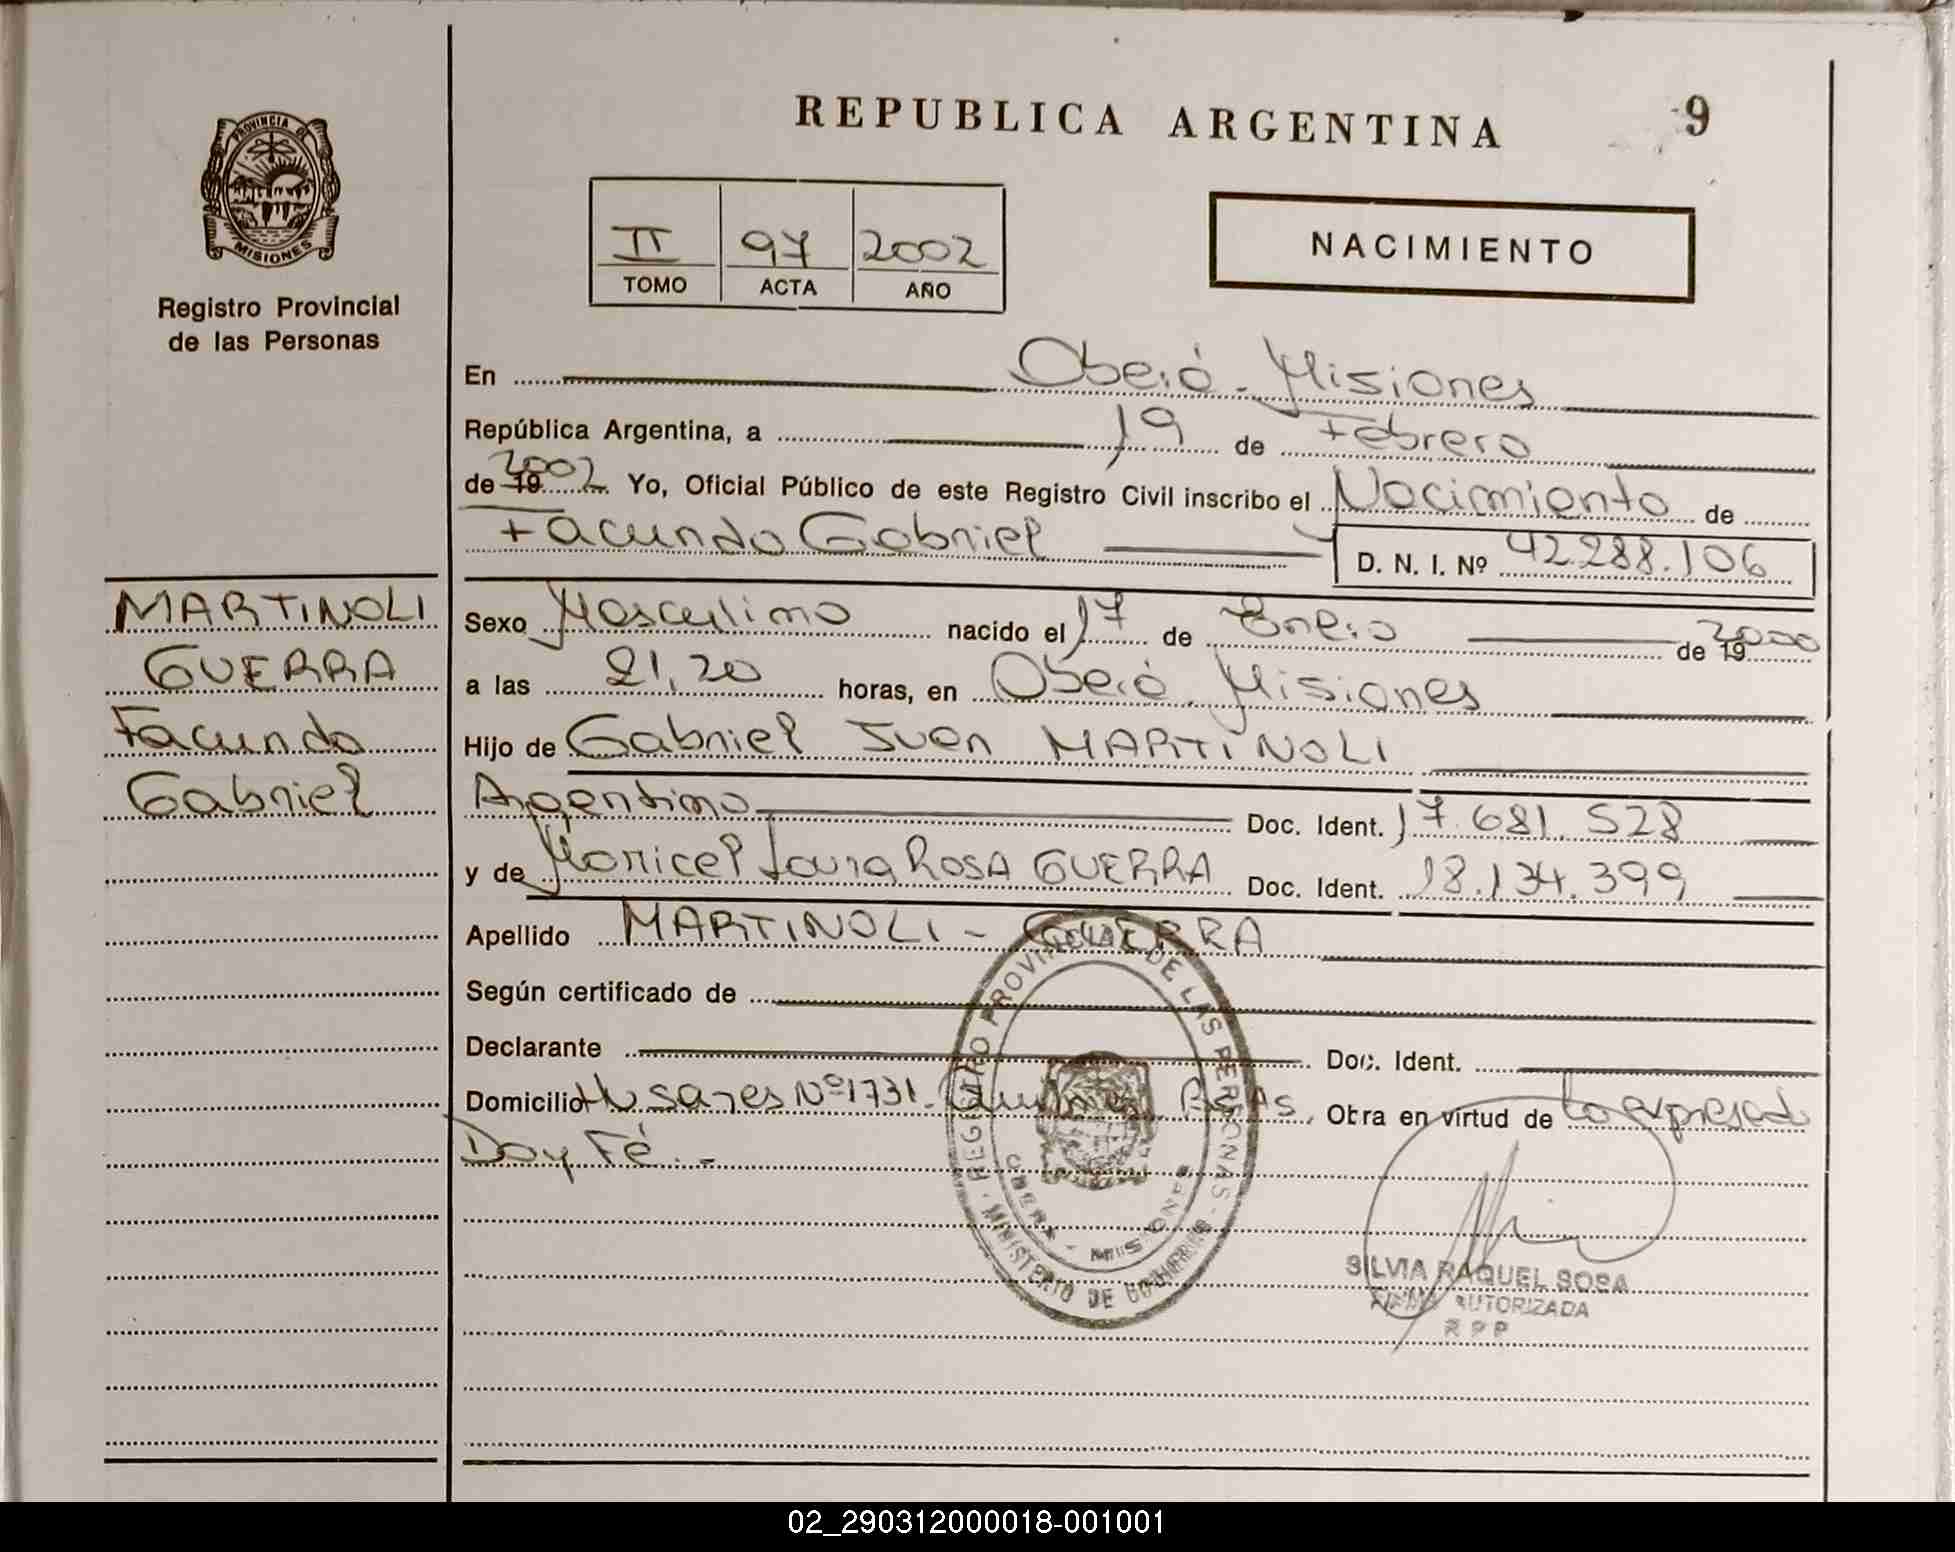 REPUBLICA ARGENTINA
9
PROVINCIA D
MISIONES
Registro Provincial
de las Personas
II 97 2002
TOMO ACTA AÑO
NACIMIENTO
En Oberá - Misiones
República Argentina, a 19 de Febrero
de 19 2002 Yo, Oficial Público de este Registro Civil inscribo el Nacimiento de
Facundo Gabriel D. N. I. Nº 42.288.106
MARTINOLI
GUERRA
Facundo
Gabriel
Sexo Masculino nacido el 17 de Enero de 19 2000
a las 21,20 horas, en Oberá Misiones
Hijo de Gabriel Juan MARTINOLI
Argentino Doc. Ident. 17.681.528
y de Maricel Laura ROSA GUERRA Doc. Ident. 18.134.399
Apellido MARTINOLI - GUERRA
Según certificado de
Declarante Doc. Ident.
Domicilio Husares Nº 1731 - Quilmes Bs As. Obra en virtud de lo expresado
Doy Fé.-
REGISTRO PROVINCIAL DE LAS PERSONAS - MINISTERIO DE GOBIERNO -
OBERA - MISIONES
SILVIA RAQUEL SOSA
FIRMA AUTORIZADA
R P P
02_290312000018-001001